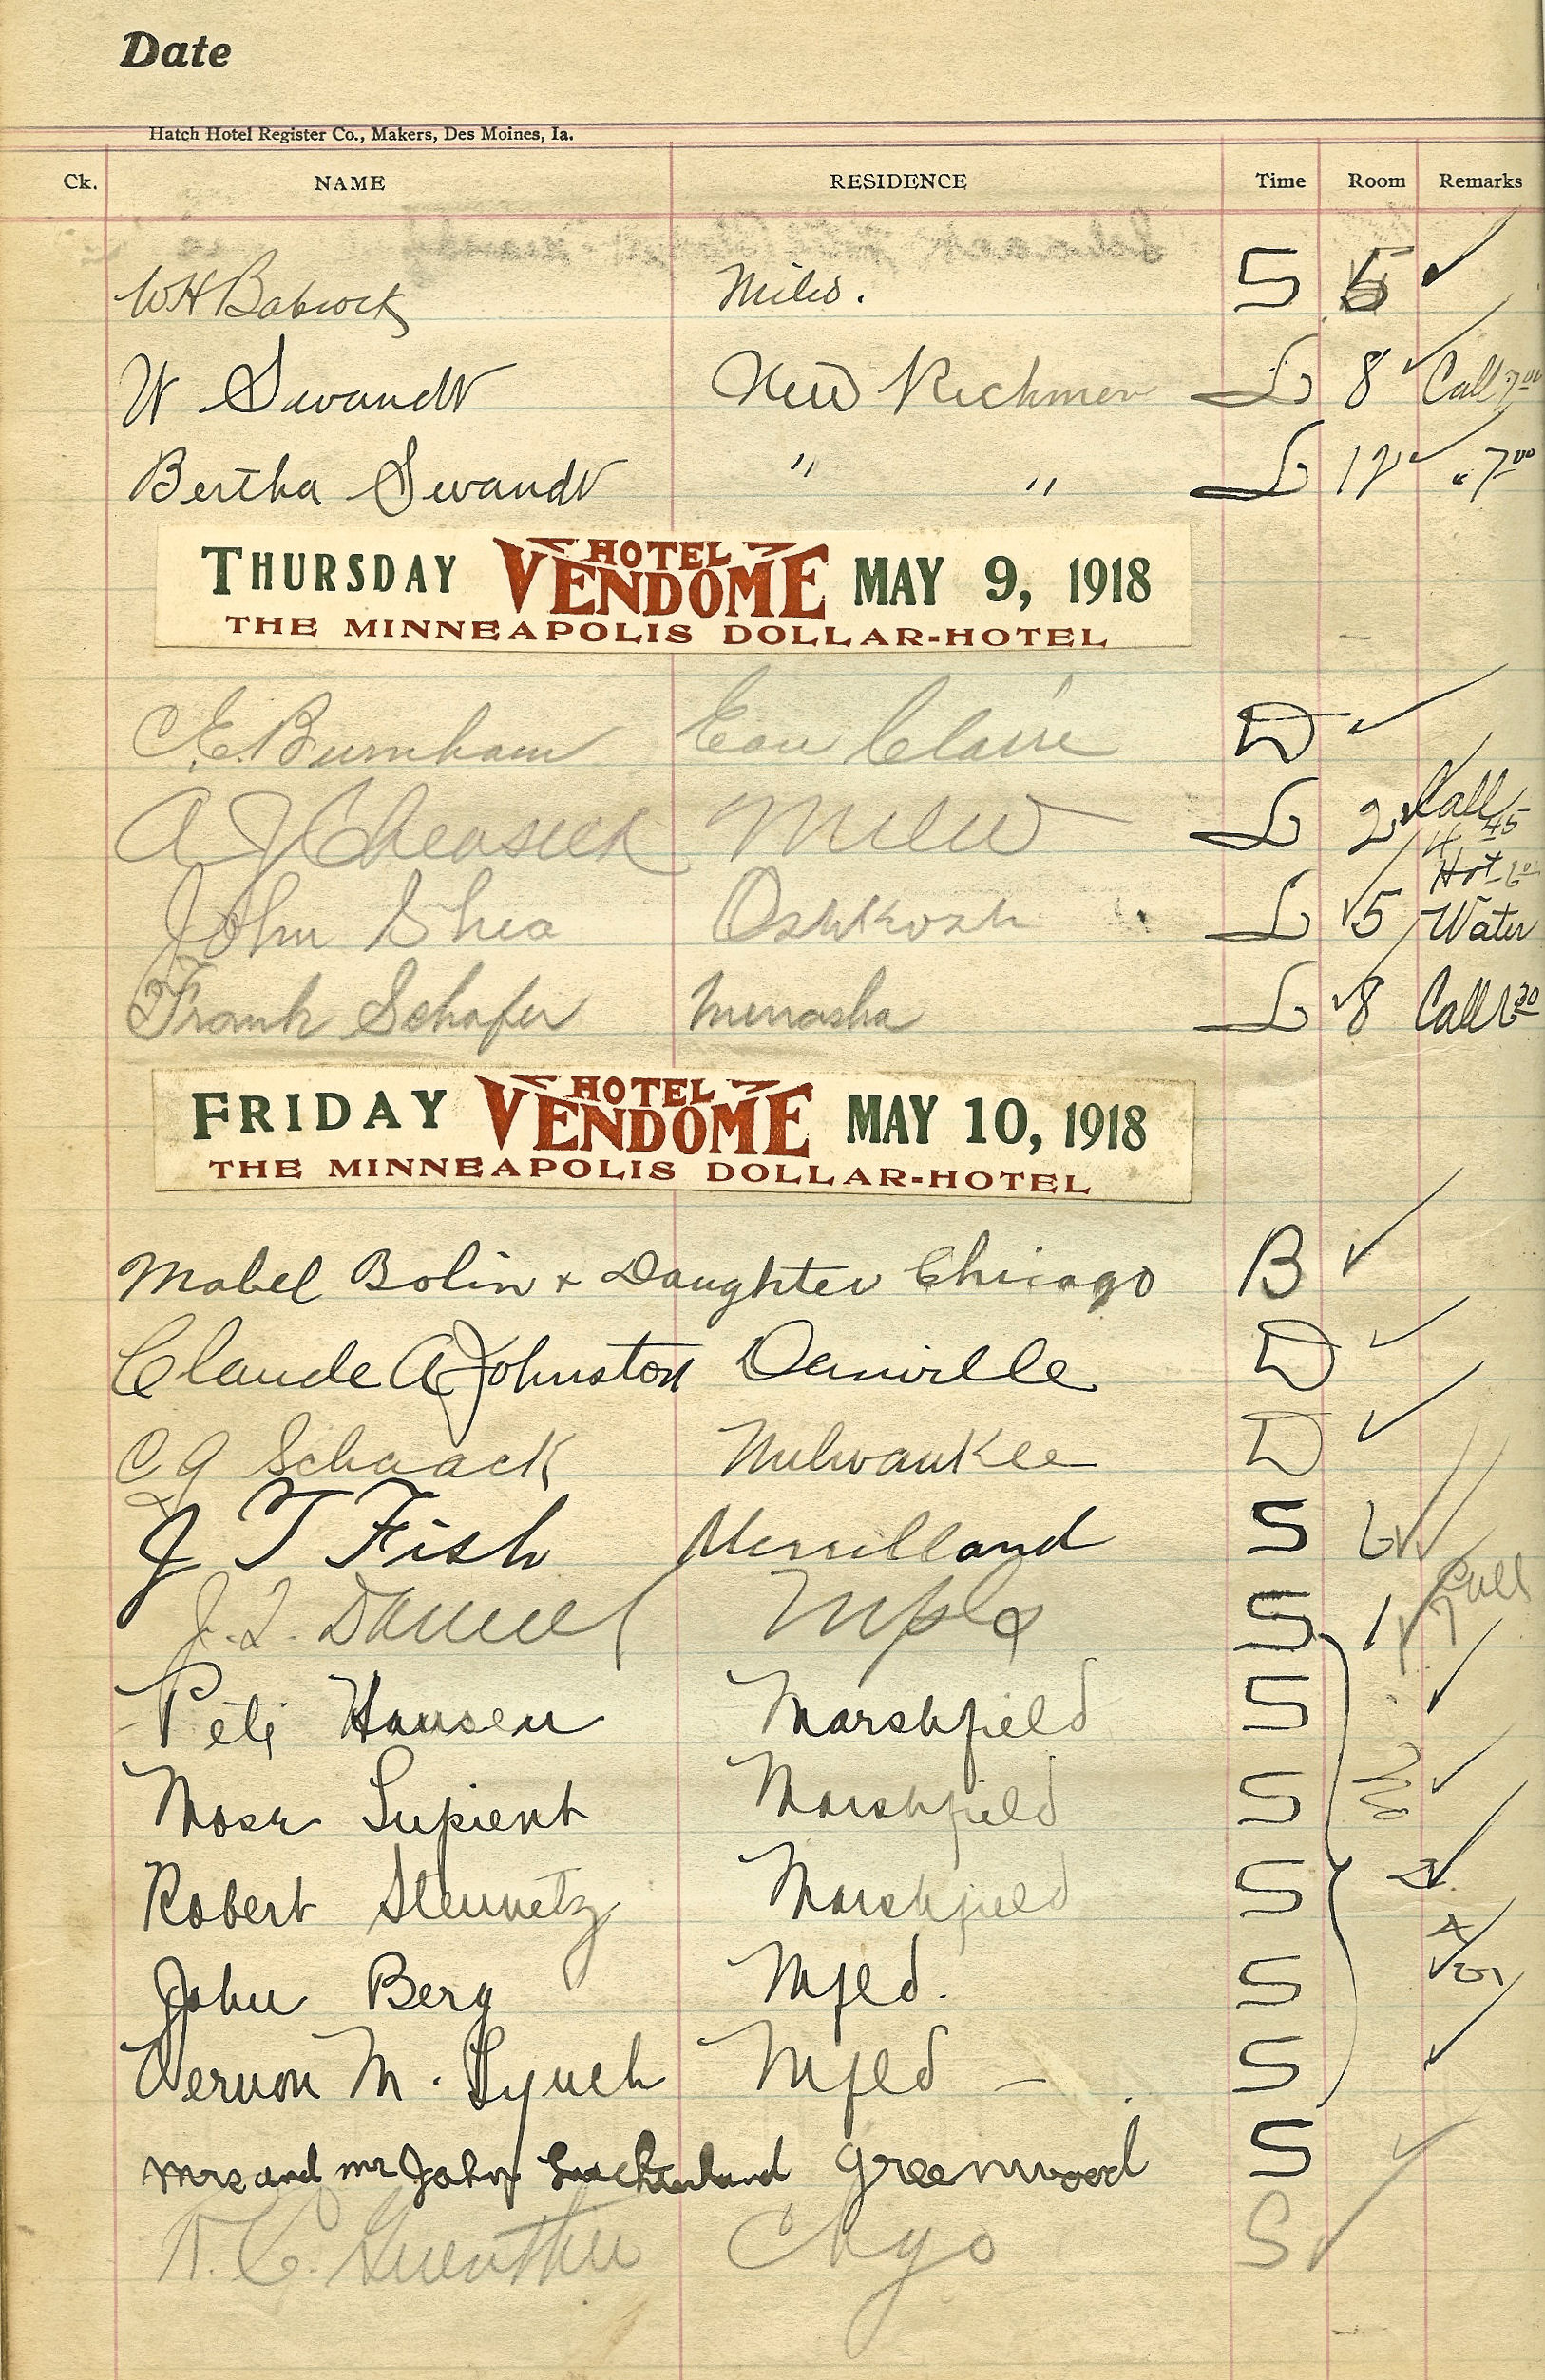 Date
Hatch Hotel Register Co., Makers, Des Moines, Ia.
Ck. NAME RESIDENCE Time Room Remarks
WH Babcock S 5
W Swandt New Richmon L 8 Call 7 00
Bertha Swandt " " L 12 " 7 00
THURSDAY HOTEL VENDOME MAY 9, 1918
THE MINNEAPOLIS DOLLAR-HOTEL
C.E. Burnham Eau Claire D
A J Milw L 2 Call 4 45
John Shea Oshkosh L 5 Hot Water
Frank Schafer Menasha L 8 Call 6 30
FRIDAY HOTEL VENDOME MAY 10, 1918
THE MINNEAPOLIS DOLLAR-HOTEL
Mabel Bolin + Daughter Chicago B
Claude A Johnston Danville D
C A Schaack Milwaukee D
J T Fish Merrilland S 6
Daniel Mpls S 1 Call 7
Pete Hansen Marshfield S
Mose Supient Marshfield S
Robert Steinmetz Marshfield S
John Berg Mfld. S
Vernon M. Lynch Mfld S
Mrs and mr John Greenwood S
Guenther Chgo S